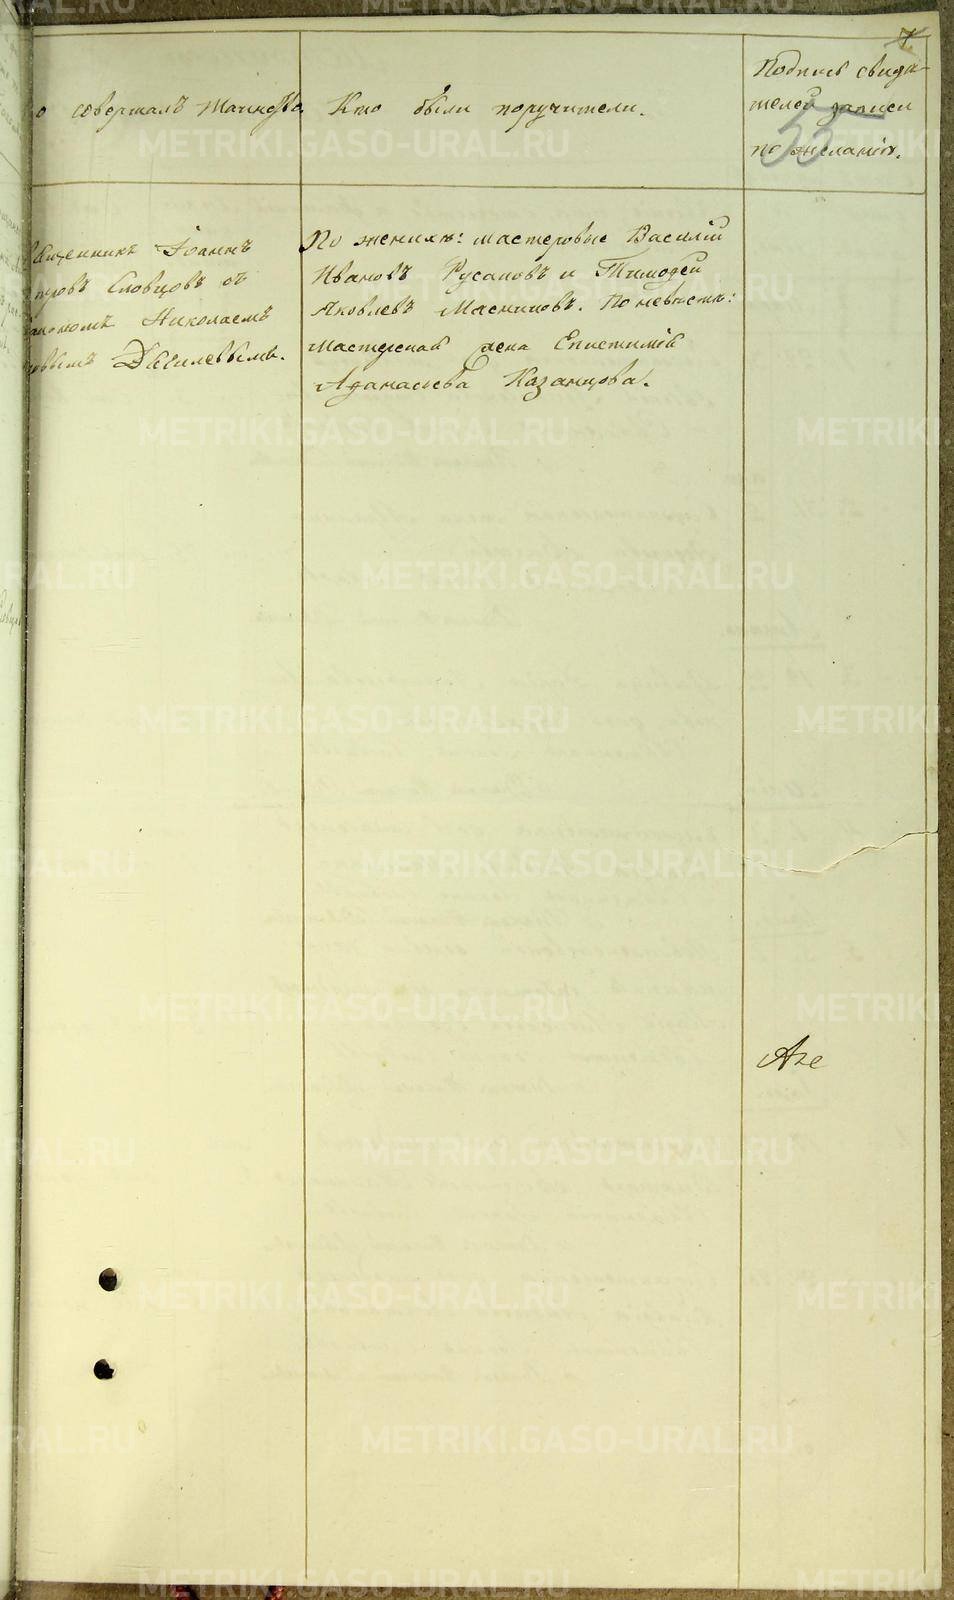 7
о совершалъ таинство.
Кто были поручители.
Подпись свиде-
телей записи
по желанію.
55
Священникъ Іоаннъ
Словцовъ съ
Николаемъ
По женихѣ: мастеровые Василій
Ивановъ Русановъ и Тимофей
Яковлевъ Масниковъ. По невѣстѣ:
Мастерская жена Епистимія
Афанасьева Казанцова.
METRIKI.GASO-URAL.RU